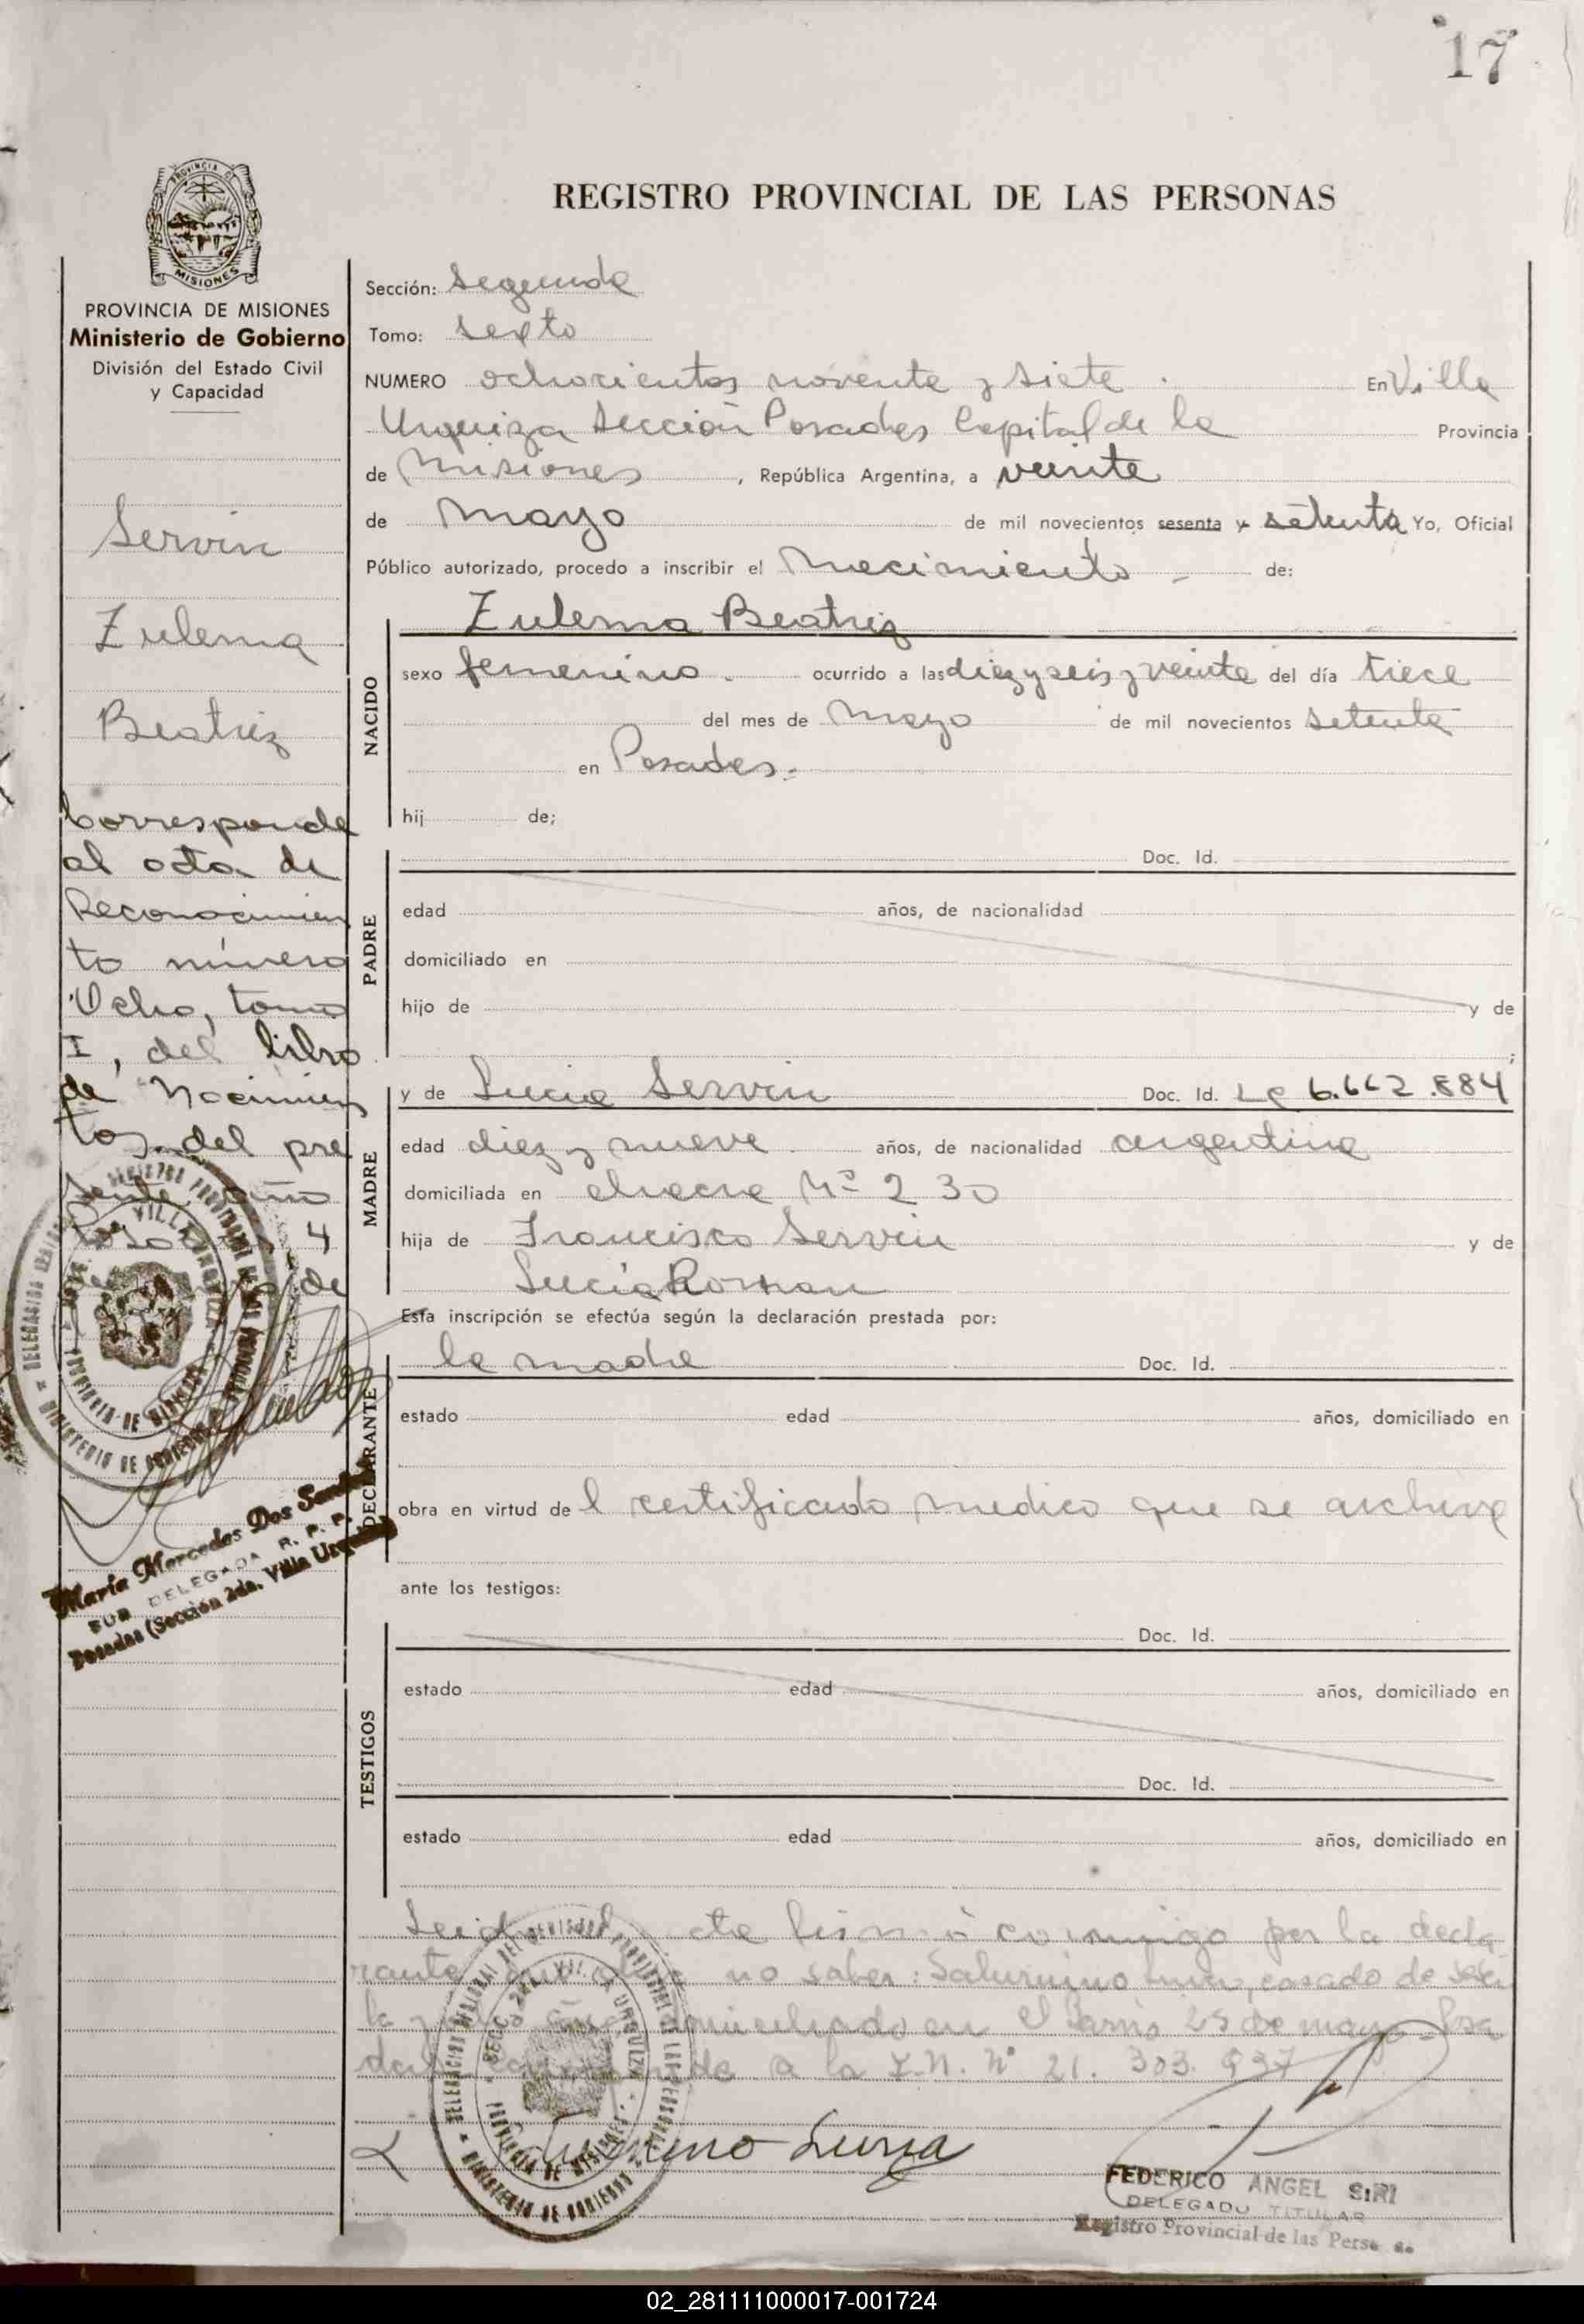 17
PROVINCIA DE
MISIONES
PROVINCIA DE MISIONES
Ministerio de Gobierno
División del Estado Civil
y Capacidad
Servin
Zulema
Beatriz
Corresponde
al acta de
Reconocimien
to número
Ocho, tomo
I, del libro
de Nacimien
tos del pre
sente año
4
de
MINISTERIO DE GOBIERNO
PROVINCIA DE MISIONES
María Mercedes Dos Santos
SUB DELEGADA R. P. P.
Posadas (Sección 2da. Villa Urquiza)
REGISTRO PROVINCIAL DE LAS PERSONAS
Sección: Segunda
Tomo: Sexto
NUMERO ochocientos noventa y siete. En Villa
Urquiza Sección Posadas Capital de la Provincia
de Misiones, República Argentina, a veinte
de mayo de mil novecientos sesenta y setenta Yo, Oficial
Público autorizado, procedo a inscribir el nacimiento - de:
NACIDO
Zulema Beatriz
sexo femenino. ocurrido a las diez y seis y veinte del día trece
del mes de mayo de mil novecientos setenta
en Posadas.-
hij de;
PADRE
Doc. Id.
edad años, de nacionalidad
domiciliado en
hijo de y de
;
MADRE
y de Lucia Servin Doc. Id. Lc 6.662.884
edad diez y nueve años, de nacionalidad argentina
domiciliada en chacra Nº 230
hija de Francisco Servin y de
Lucía Roman
Esta inscripción se efectúa según la declaración prestada por:
DECLARANTE
la madre Doc. Id.
estado edad años, domiciliado en
obra en virtud de l certificado medico que se archiva
ante los testigos:
TESTIGOS
Doc. Id.
estado edad años, domiciliado en
Doc. Id.
estado edad años, domiciliado en
acta firmó conmigo por la decla
rante no saber: Saturnino Luna, casado de
domiciliado en el Barrio 25 de mayo Posa
das a la I.N. Nº 21. 303. 937
MINISTERIO DE GOBIERNO
PROVINCIA DE MISIONES
Saturnino Luna
FEDERICO ANGEL SIRI
DELEGADO TITULAR
Registro Provincial de las Pers
02_281111000017-001724